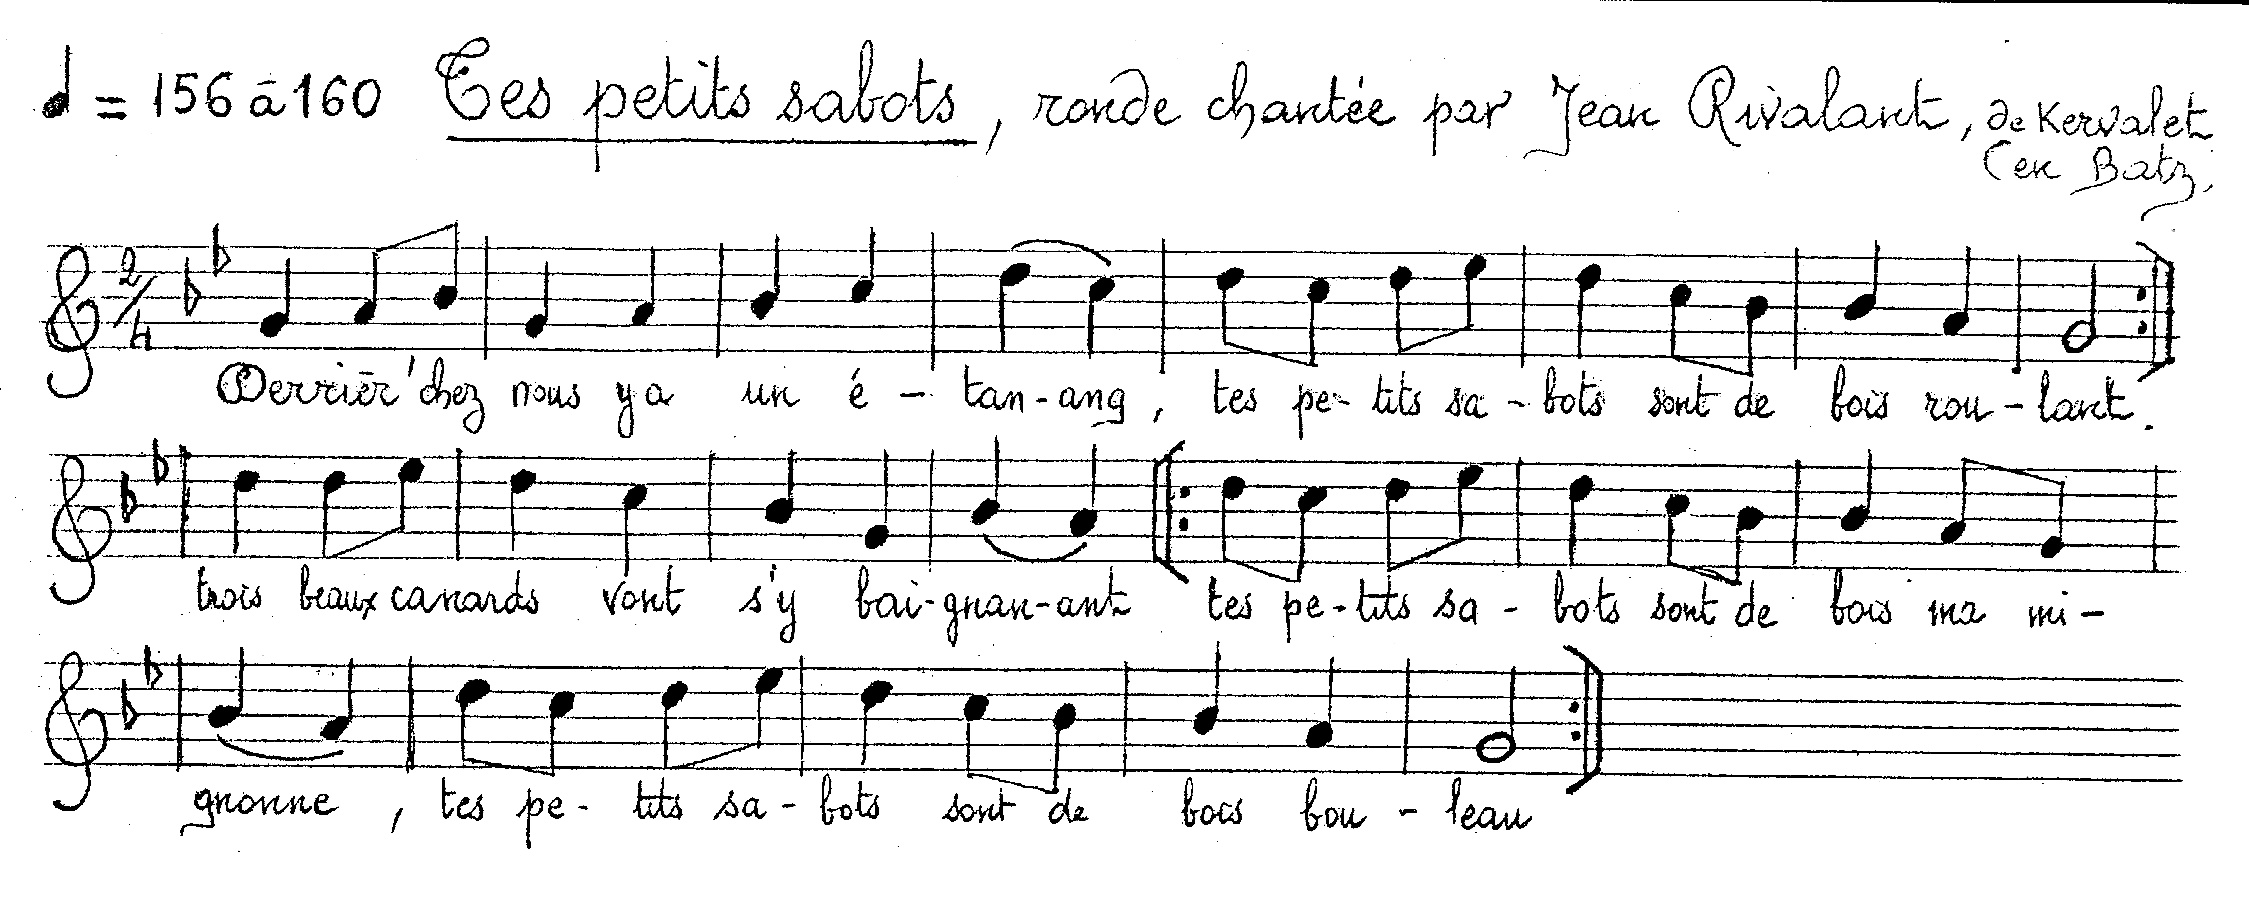 ♩ = 156 à 160 Tes petits sabots, ronde chantée par Jean Rivalant, de Kervalet
(en Batz)
2/4
Derrièr' chez nous y a un é - tan - ang, tes pe - tits sa - bots sont de bois rou - lant.
trois beaux canards vont s'y bai - gnan - ant tes pe - tits sa - bots sont de bois ma mi -
gnonne, tes pe - tits sa - bots sont de bois bou - leau